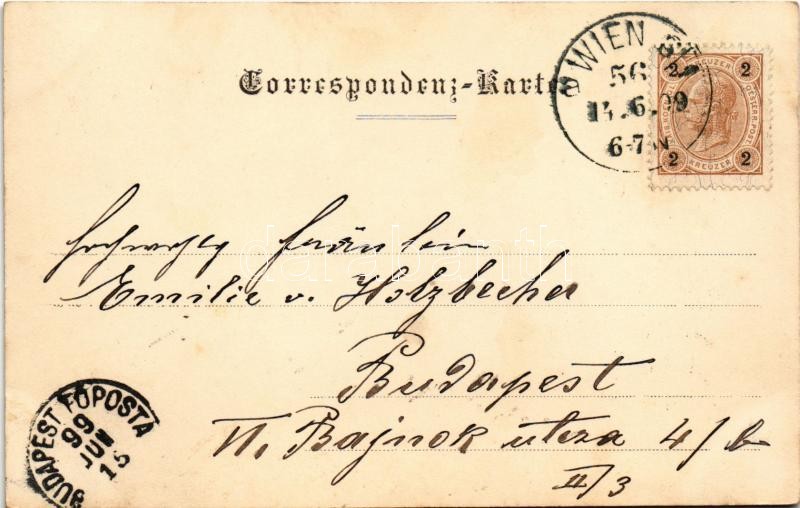 Correspondenz-Karte
WIEN
56
14.6.99
6-7N
2 KREUZER 2
OESTERR. POST.
2 KREUZER 2
Hochwohlg Fräulein
Emilie v. Holzbecher
Budapest
VI. Bajnok utcza 4/b
II/3
BUDAPEST FŐPOSTA
99
JUN
15
darabanth